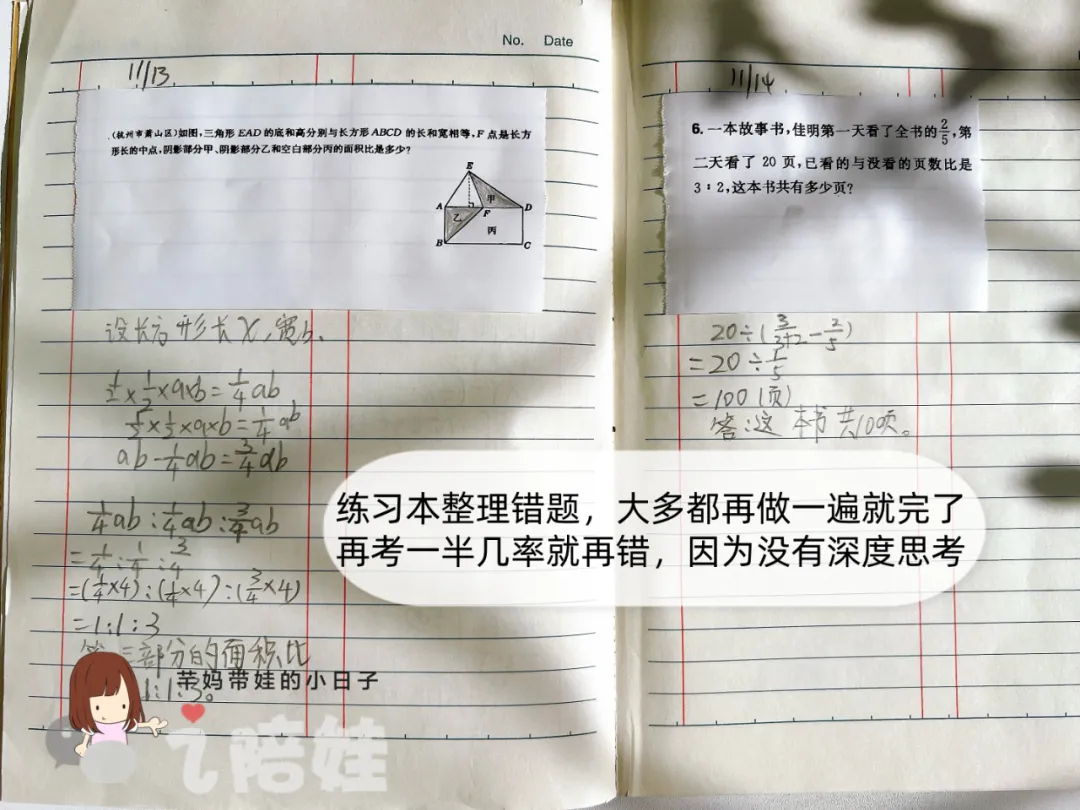 No. Date
11/13
(杭州市萧山区)如图,三角形 EAD 的底和高分别与长方形 ABCD 的长和宽相等,F 点是长方
形长的中点,阴影部分甲、阴影部分乙和空白部分丙的面积比是多少?
E
甲
A F D
乙
丙
B C
设长方形长X,宽b、
½×½×a×b=¼ab
½×½×a×b=¼ab
ab-¼ab=¾ab
¼ab:¼ab:¾ab
=¼:¼:¾
=(¼×4):(¼×4):(¾×4)
=1:1:3
答 三部分的面积比
1:1:3。
11/14
6. 一本故事书,佳明第一天看了全书的2/5,第
二天看了 20 页,已看的与没看的页数比是
3∶2,这本书共有多少页?
20÷(3/3+2-2/5)
=20÷1/5
=100(页)
答:这本书共100页。
练习本整理错题，大多都再做一遍就完了
再考一半几率就再错，因为没有深度思考
芊妈带娃的小日子
飞陪娃